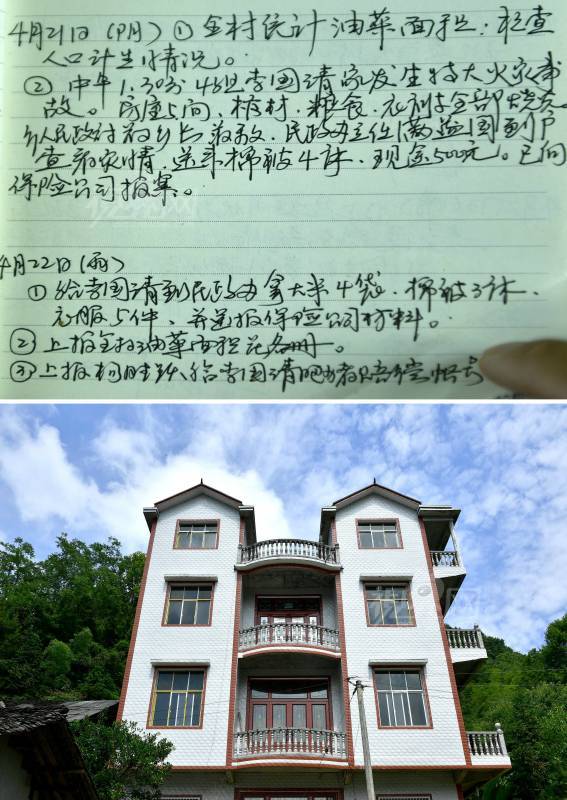 4月21日(阴)①全村统计油菜面积:检查
人口计生情况。
②中午1.30分4组李国清家发生特大火灾事
故。房屋5间、板材、粮食、衣物等全部烧光。
乡人民政府和乡上救救、民政办主任满益国到户
查看灾情,送来棉被4床、现金500元。已向
保险公司报案。
4月22日(雨)
①给李国清到民政办拿大米4袋、棉被3床、
衣服5件、并送报保险公司材料。
②上报全村油菜面积花名册。
③上报 给李国清 赔偿帐号